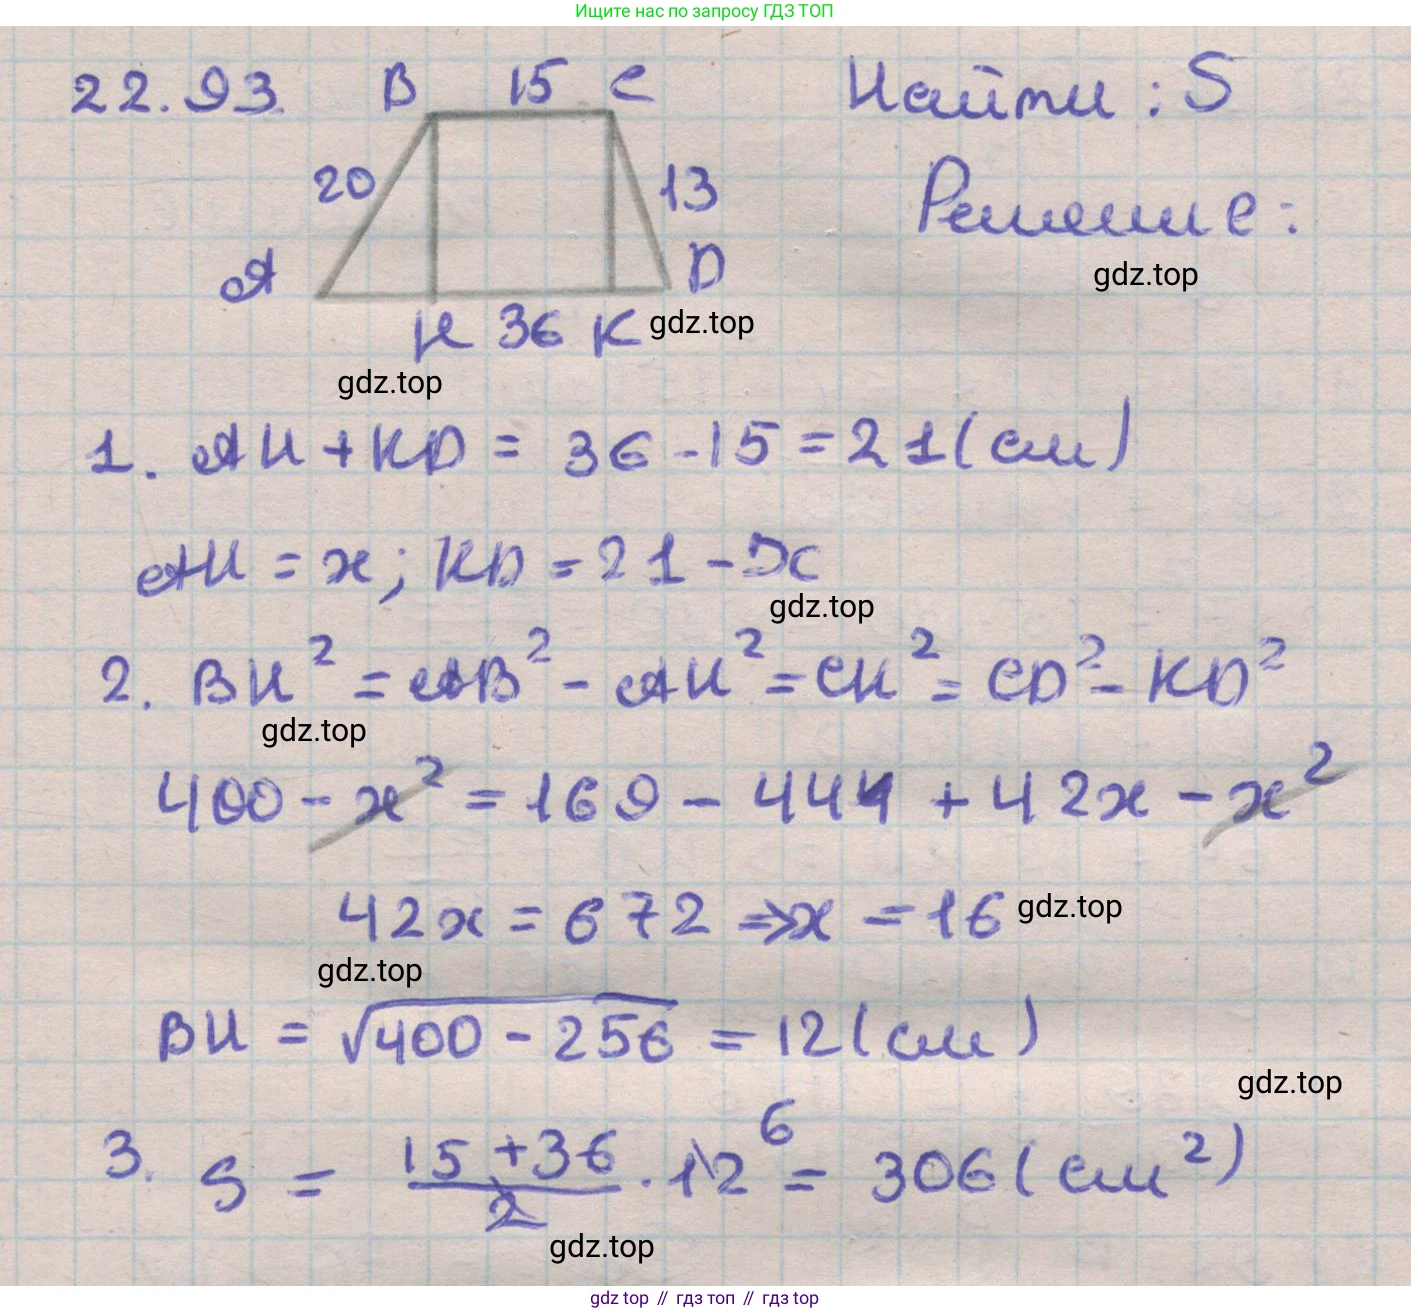 Ищите нас по запросу ГДЗ ТОП
22.93 B 15 C Найти : S
20 13 Решение :
A D gdz.top
H 36 K gdz.top
gdz.top
1. AH + KD = 36 - 15 = 21 (см)
AH = x ; KD = 21 - x
gdz.top
2. BH² = AB² - AH² = CH² = CD² - KD²
gdz.top
400 - x² = 169 - 441 + 42x - x²
42x = 672 ⇒ x = 16 gdz.top
gdz.top
BH = √400 - 256 = 12 (см)
gdz.top
3. S = 15 + 36 / 2 · 12 6 = 306 (см²)
gdz.top
gdz top // гдз топ // гдз top